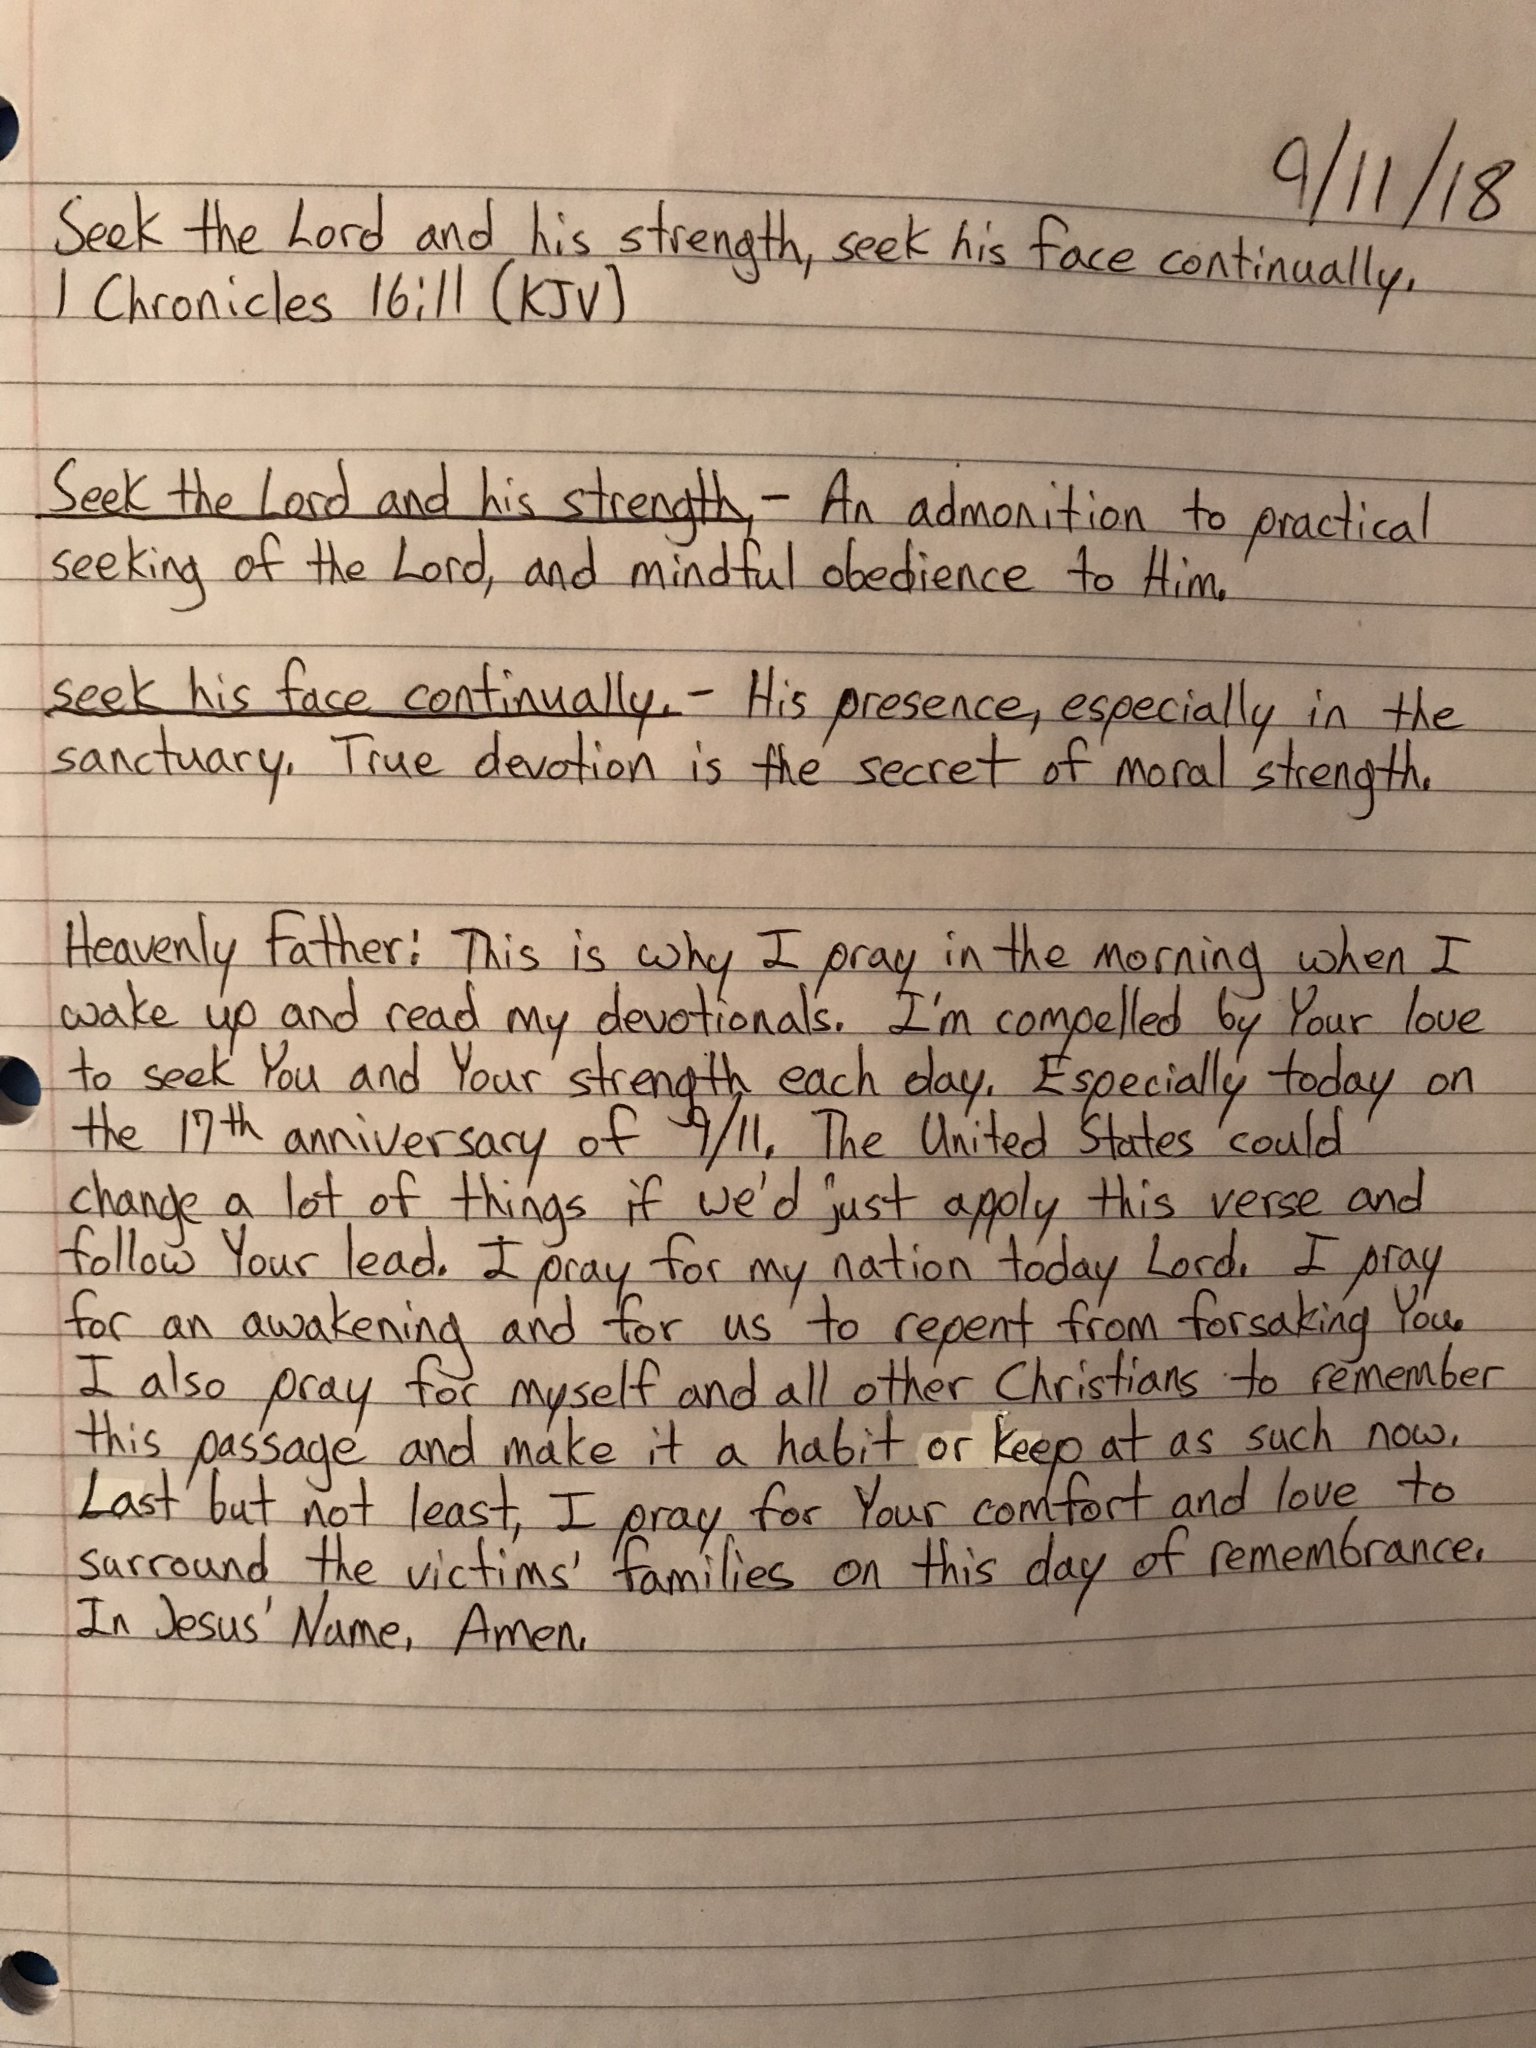 9/11/18
Seek the Lord and his strength, seek his face continually.
1 Chronicles 16:11 (KJV)
Seek the Lord and his strength, - An admonition to practical
seeking of the Lord, and mindful obedience to Him.
seek his face continually. - His presence, especially in the
sanctuary. True devotion is the secret of moral strength.
Heavenly Father: This is why I pray in the morning when I
wake up and read my devotionals. I'm compelled by Your love
to seek You and Your strength each day. Especially today on
the 17th anniversary of 9/11. The United States could
change a lot of things if we'd just apply this verse and
follow Your lead. I pray for my nation today Lord. I pray
for an awakening and for us to repent from forsaking You.
I also pray for myself and all other Christians to remember
this passage and make it a habit or keep at as such now.
Last but not least, I pray for Your comfort and love to
surround the victims' families on this day of remembrance.
In Jesus' Name, Amen.